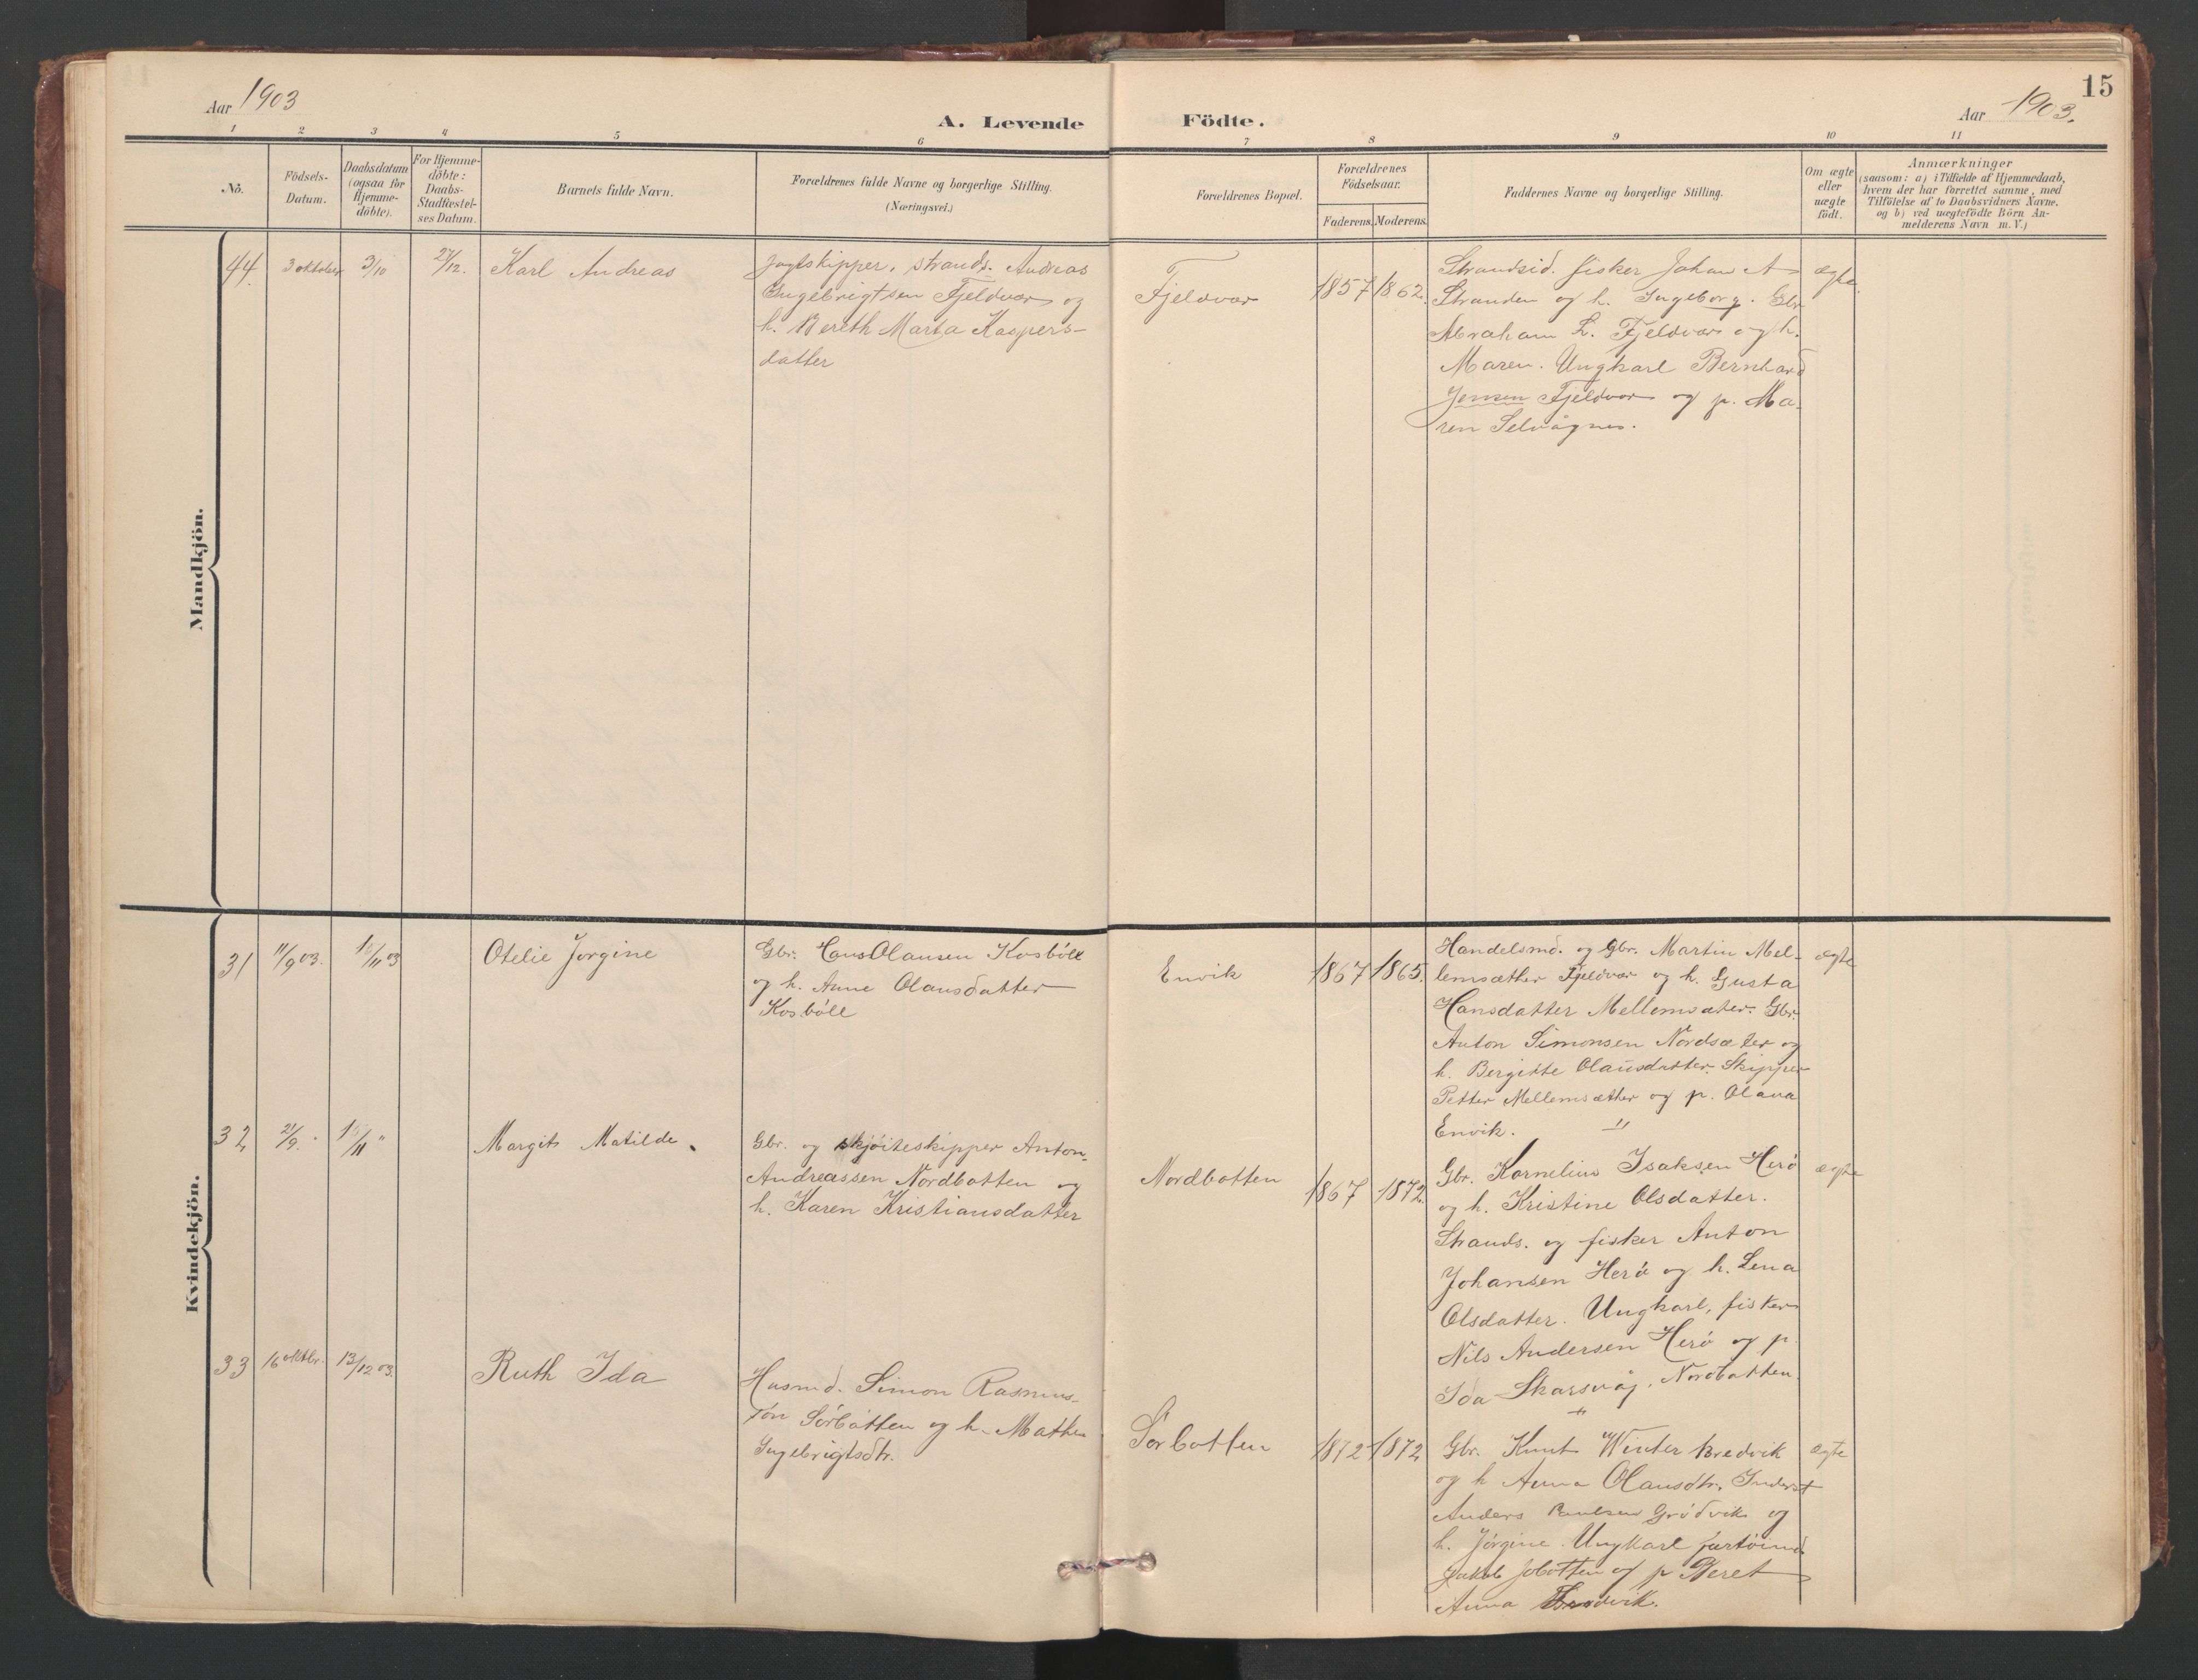 15
Aar 1903
Aar 1903.
A. Levende Födte.
1 2 3 4 5 6 7 8 9 10 11
No.
Födsels-
Datum.
Daabsdatum
(ogsaa for
Hjemme-
döbte).
For Hjemme-
döbte:
Daabs-
Stadfæstel-
ses Datum.
Barnets fulde Navn.
Forældrenes fulde Navne og borgerlige Stilling.
(Næringsvei.)
Forældrenes Bopæl.
Forældrenes
Födselsaar.
Faderens. Moderens.
Faddernes Navne og borgerlige Stilling.
Om ægte
eller
uægte
födt.
Anmærkninger
(saasom: a) i Tilfælde af Hjemmedaab,
hvem der har forrettet samme, med
Tilföielse af to Daabsvidners Navne.
og b) ved uægtefödte Börn An-
melderens Navn m. V.)
Mandkjön.
44. 3 oktober 3/10 27/12. Karl Andreas
Jagtskipper, strands. Andreas
Ingebrigtsen Fjeldvær og
h. Bereth Marta Kaspers-
datter
Fjeldvær 1857 1862.
Strandsid. fisker Johan A
Stranden og h. Ingeborg. Gbr
Abraham L. Fjeldvær og h.
Maren. Ungkarl Bernhard
Jensen Fjeldvær og p. Ma-
ren Selvågnes.
ægte.
Kvindekjön.
31 11/9 03. 15/11 03 Otelie Jorgine
Gbr. Hans Olausen Kosböll
og h. Anne Olausdatter
Kosböll
Envik 1867 1865.
Handelsmd. og Gbr. Martin Mel-
lemsæther Fjeldvær og h. Gusta
Hansdatter Mellemsæter. Gbr.
Anton Simonsen Nordsæter og
h. Bergitte Olausdatter. Skipper
Petter Mellemsæther og p. Olava
Envik. "
ægte
32 21/9. " 15/11 " Margit Matilde.
Gbr. og skjöiteskipper Anton
Andreassen Nordbotten og
h. Karen Kristiansdatter
Nordbotten 1867 1872
Gbr. Kornelius Isaksen Herö
og h. Kristine Olsdatter.
Strands. og fisker Anton
Johansen Herö og h. Lena
Olsdatter. Ungkarl, fisker
Nils Andersen Herö og p.
Ida Skarsvåg, Nordbotten.
"
ægte
33 16 oktbr. 13/12 03. Ruth Ida
Husmd. Simon Rasmus-
sön Sörbotten og h. Mathea
Ingebrigtsdtr.
Sörbotten 1872 1872
Gbr. Knut Winter Bredvik
og h Anna Olausdtr. Inderst
Anders Paulsen Grödvik og
h. Jörgine. Ungkarl
Jakob og p Beret
Anna
ægte